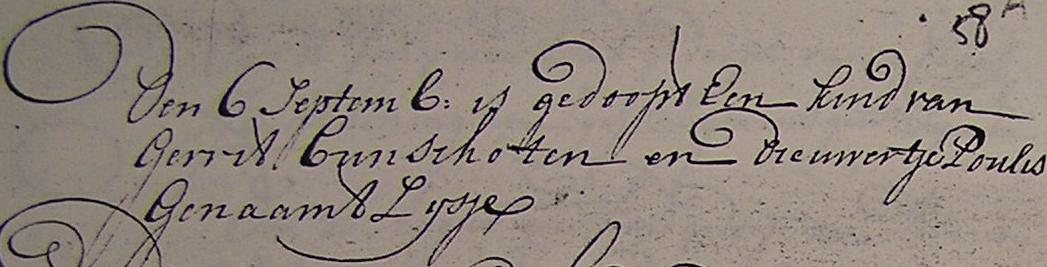 58
Den 6 Septemb: is gedoopt Een kind van
Gerrit bunschoten en Dieuwertje Poulis
Genaamt Lysje